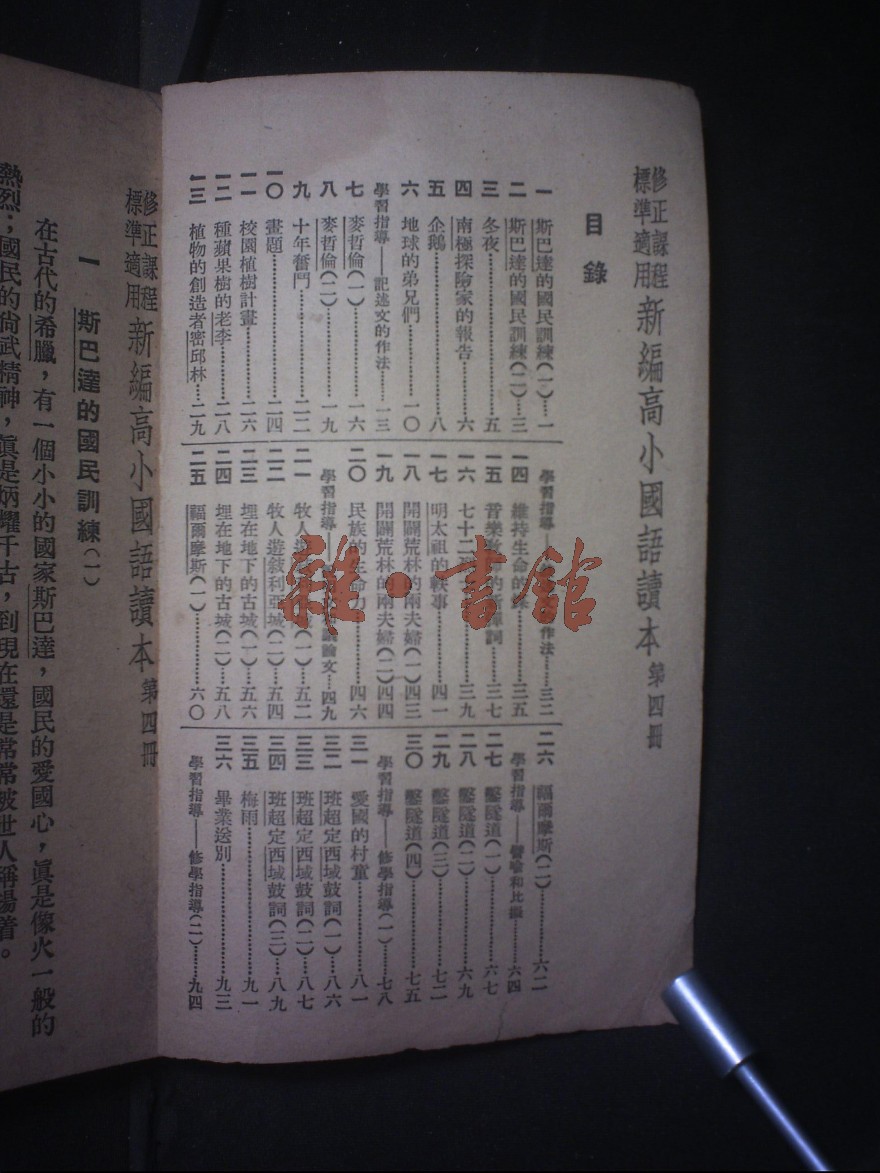 修正課程
標準適用
新編高小國語讀本 第四冊
目錄
一 斯巴達的國民訓練(一)…一
二 斯巴達的國民訓練(二)…三
三 冬夜……五
四 南極探險家的報告……六
五 企鵝……八
六 地球的弟兄們……一〇
學習指導——記述文的作法……一三
七 麥哲倫(一)……一六
八 麥哲倫(二)……一九
九 十年奮鬥……二二
一〇 畫題……二四
一一 校園植樹計畫……二六
一二 種蘋果樹的老李……二八
一三 植物的創造者密邱林…二九
學習指導——作法……三二
一四 維持生命的……三五
一五 音樂詞……三七
一六 七十二……三九
一七 明太祖的軼事……四一
一八 開闢荒林的兩夫婦(一)四三
一九 開闢荒林的兩夫婦(二)四四
二〇 民族的生命力……四六
學習指導——議論文…四九
二一 牧人遊(一)……五二
二二 牧人遊敍利亞城(二)……五四
二三 埋在地下的古城(一)……五六
二四 埋在地下的古城(二)……五八
二五 福爾摩斯(一)……六〇
二六 福爾摩斯(二)……六二
學習指導——譬喻和比擬……六四
二七 鑿隧道(一)……六七
二八 鑿隧道(二)……六九
二九 鑿隧道(三)……七二
三〇 鑿隧道(四)……七五
學習指導——修學指導(一)……七八
三一 愛國的村童……八一
三二 班超定西域鼓詞(一)…八六
三三 班超定西域鼓詞(二)…八七
三四 班超定西域鼓詞(三)…八九
三五 梅雨……九一
三六 畢業送別……九三
學習指導——修學指導(二)……九四
雜·書館
修正課程
標準適用
新編高小國語讀本 第四冊
一 斯巴達的國民訓練(一)
在古代的希臘,有一個小小的國家斯巴達,國民的愛國心,眞是像火一般的
熱烈;國民的尙武精神,眞是炳耀千古,到現在還是常常被世人稱揚着。